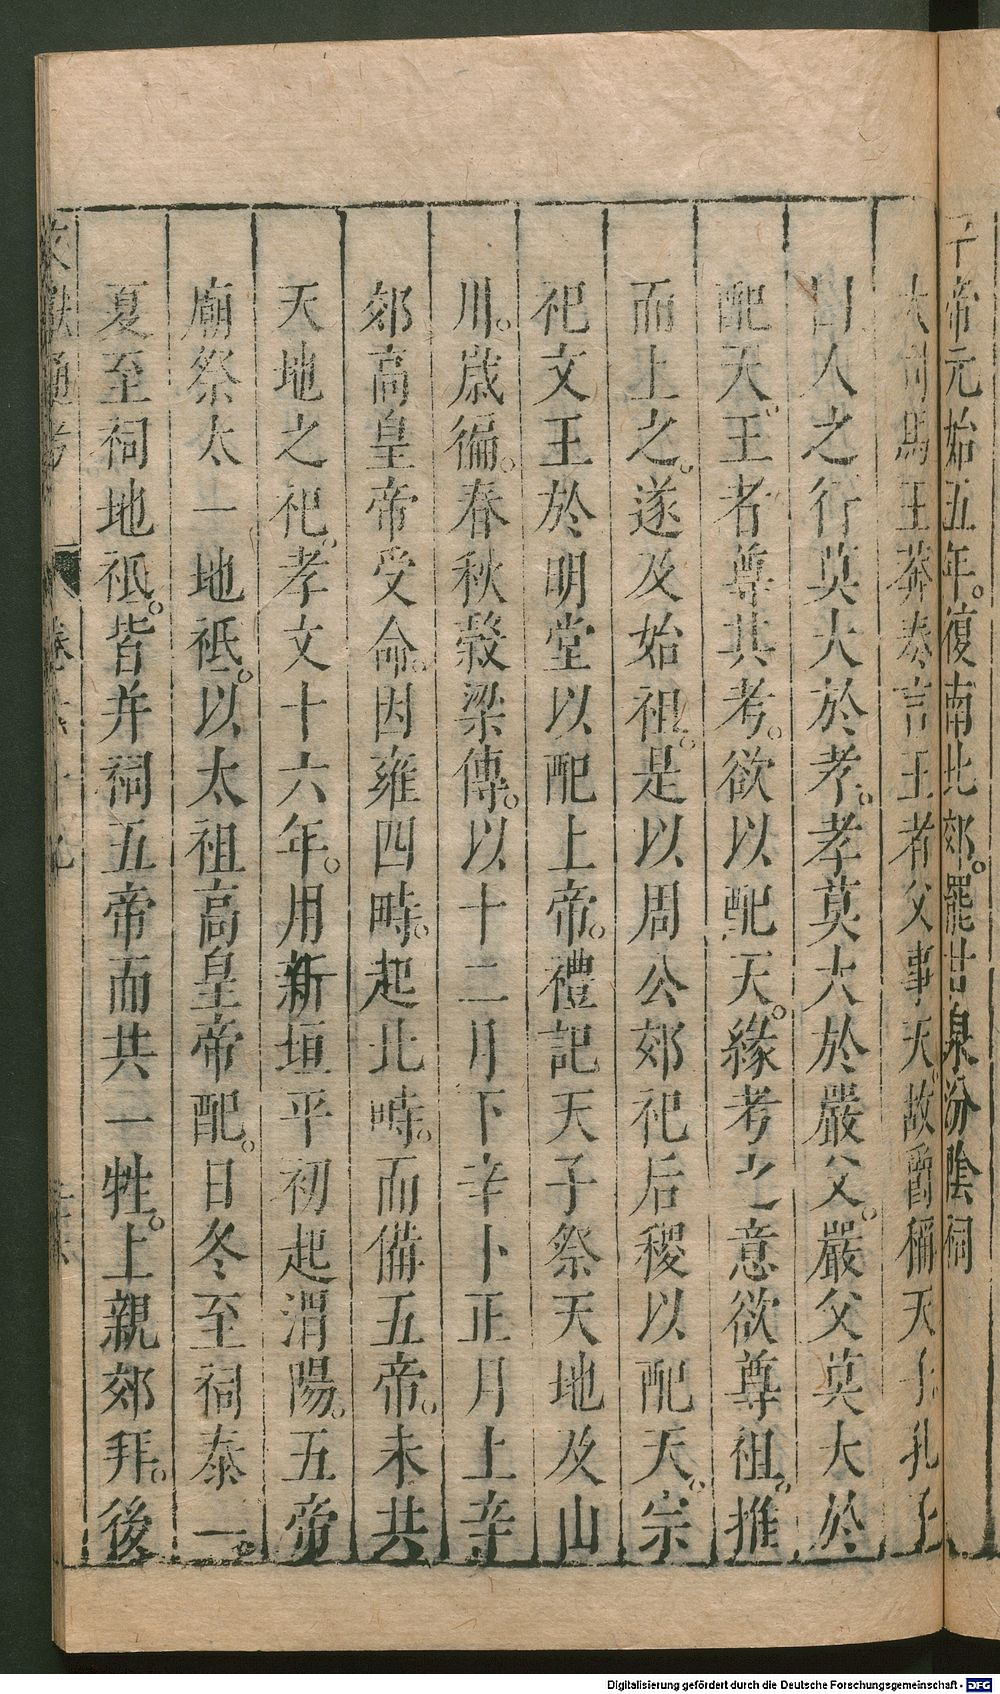 子帝元始五年。復南北郊。罷甘泉汾陰祠
大司馬王莽奏言王者父事天。故爵稱天子。孔子
曰人之行莫大於孝。孝莫大於嚴父。嚴父莫大於
配天。王者尊其考。欲以配天。緣考之意欲尊祖。推
而上之。遂及始祖。是以周公郊祀后稷以配天。宗
祀文王於明堂以配上帝。禮記天子祭天地及山
川。歲徧。春秋穀梁傳。以十二月下辛卜正月上辛
郊高皇帝受命。因雍四畤。起北畤。而備五帝。未共
天地之祀。孝文十六年。用新垣平初起渭陽。五帝
廟祭太一地祗。以太祖高皇帝配。日冬至祠泰一。
夏至祠地祗。皆并祠五帝而共一牲。上親郊拜。後
文獻通考 卷六十九
Digitalisierung gefördert durch die Deutsche Forschungsgemeinschaft - DFG